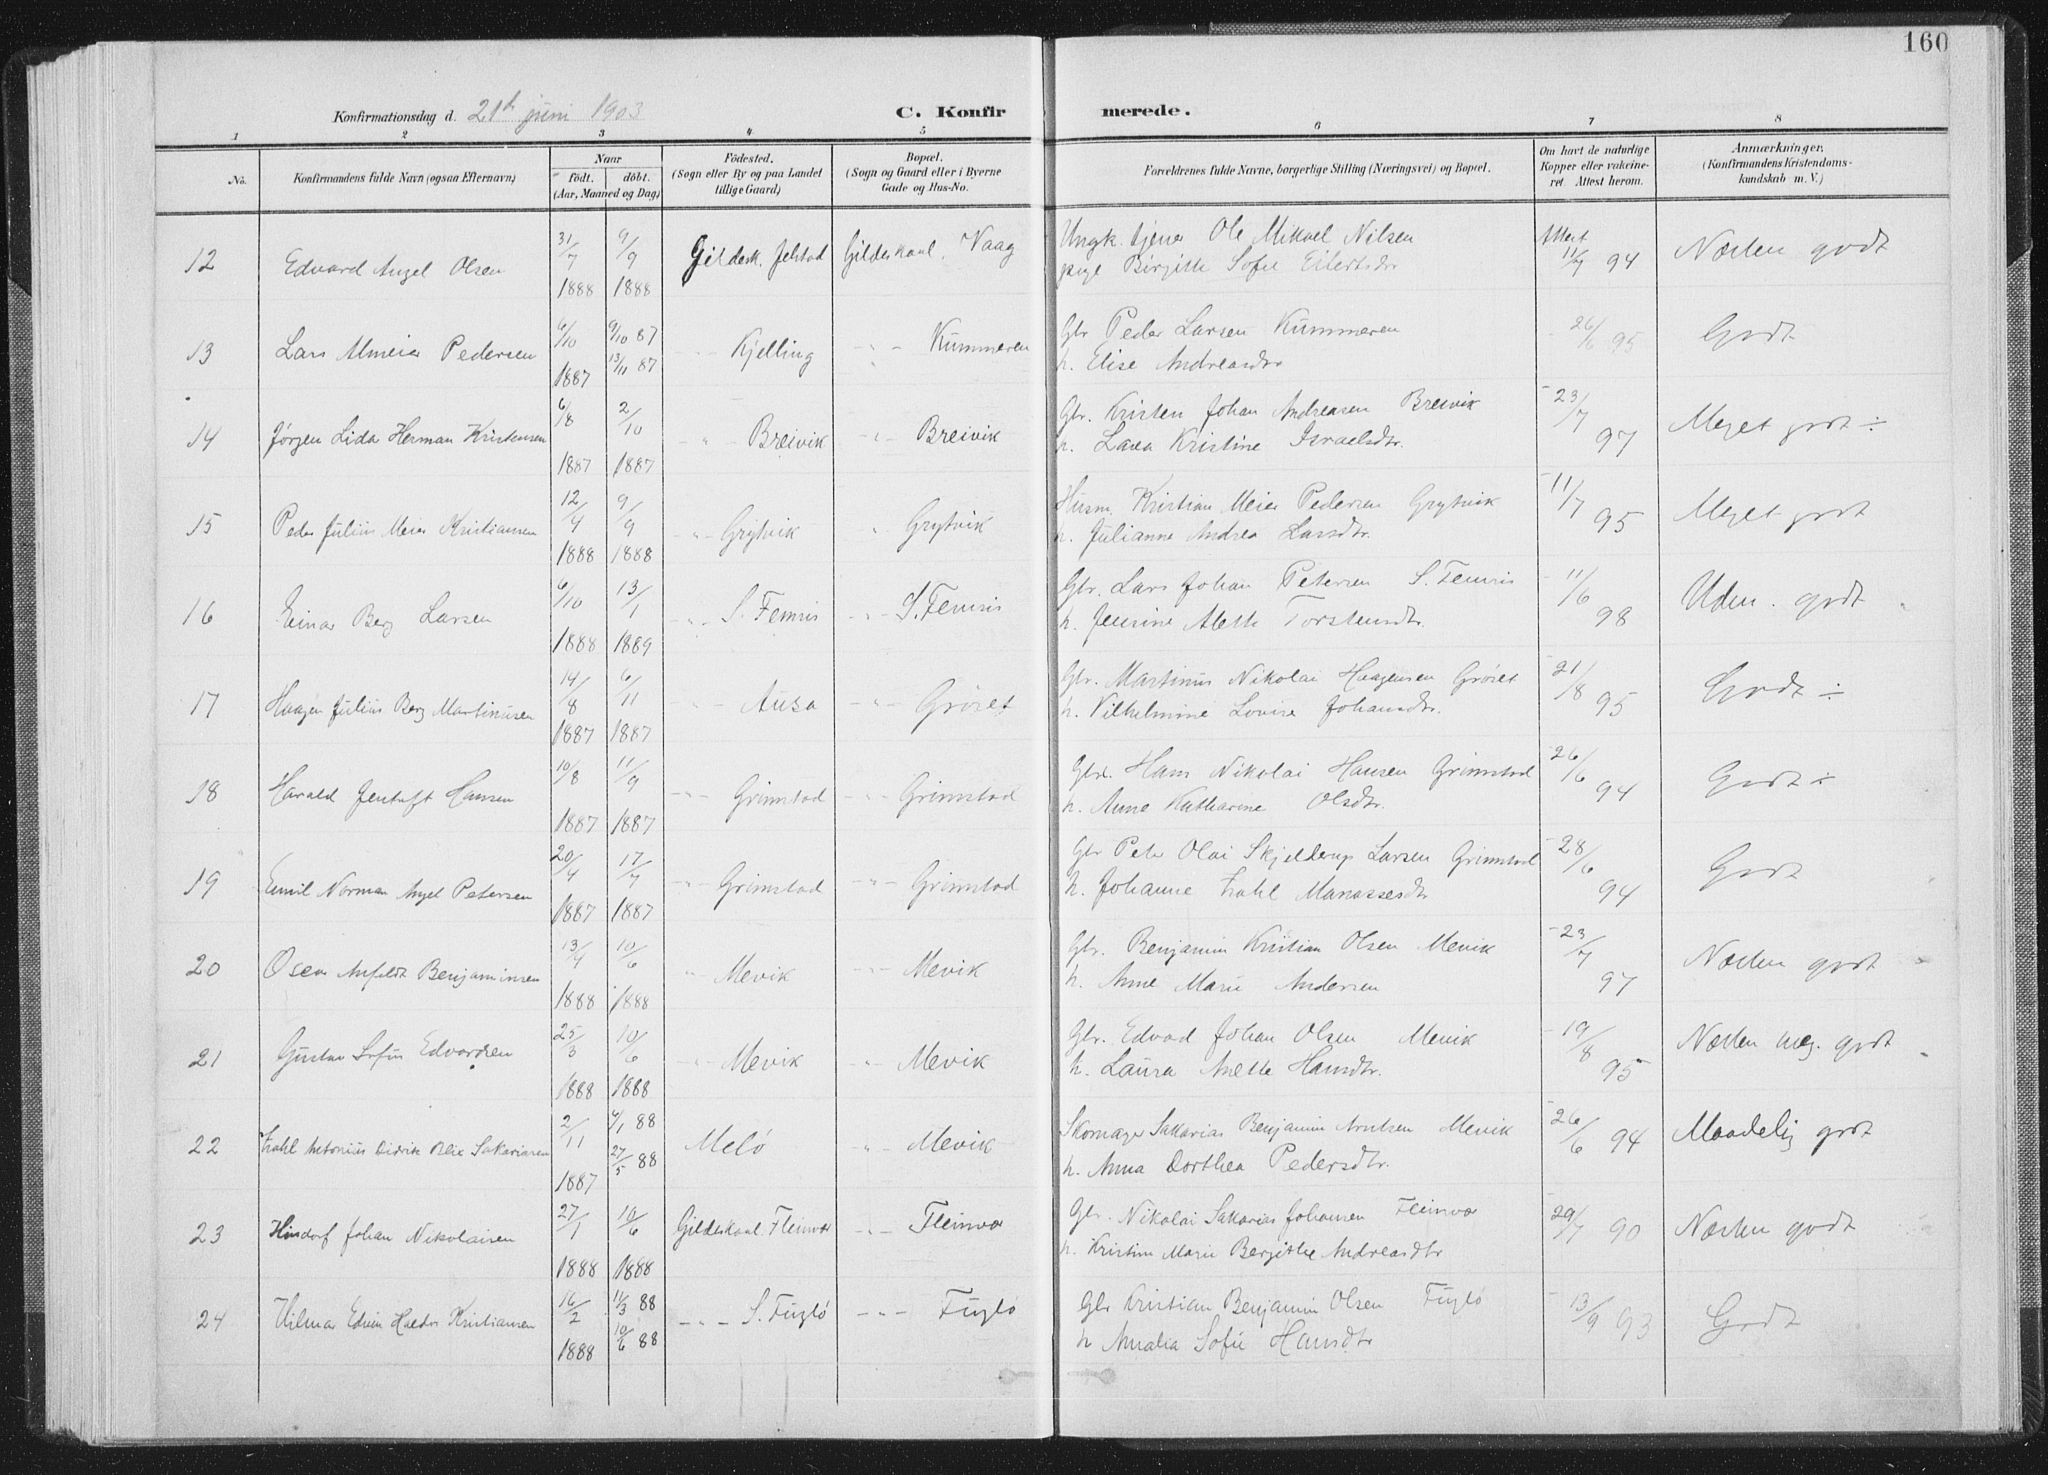 160
Konfirmationsdag d. 21th juni 1903
C. Konfirmerede.
1 2 3 4 5 6 7 8
No.
Konfirmandens fulde Navn (ogsaa Efternavn)
Naar
födt. döbt.
(Aar, Maaned og Dag)
Födested.
(Sogn eller By og paa Landet tillige Gaard)
Bopæl.
(Sogn og Gaard eller i Byerne Gade og Hus-No.
Forældrenes fulde Navne, borgerlige Stilling (Næringsvei) og Bopæl.
Om havt de naturlige Kopper eller vakcineret. Attest herom.
Anmærkninger.
(Konfirmandens Kristendomskundskab m. V.)
12 Edvard Angel Olsen 31/7 1888 9/9 1888 Gildesk. Jelstad Gildeskaal. Vaag
Ungk. tjener Ole Mikael Nilsen
pige Birgitte Sofie Eilertsdr
Attest 11/7 94 Næsten godt
13 Lars Almeier Pedersen 6/10 1887 9/10 87 13/11 87 -"- Kjelling -"- Kummeren
Gbr Peder Larsen Kummeren
h. Elise Andreasdtr
- 26/6 95 Godt
14 Jørgen Lida Herman Kristensen 6/8 1887 2/10 1887 -"- Breivik -"- Breivik
Gbr. Kristen Johan Andreasen Breivik
h. Lava Kristine Israelsdtr.
- 23/7 97 Meget godt ÷
15 Peder Julius Meier Kristiansen 12/4 1888 9/9 1888 -"- Grytvik " Grytvik
Husm. Kristian Meier Pedersen Grytvik
h. Julianne Andrea Larsdtr.
- 11/7 95 Meget godt
16 Einar Berg Larsen 6/10 1888 13/1 1889 -"- S. Femris -"- S. Femris
Gbr. Lars Johan Petersen S. Femris
h. Jensine Aleth Torstensdtr.
- 11/6 98 Uden. godt
17 Haagen Julius Berg Martinusen 14/8 1887 6/11 1887 -"- Ausa -"- Grøset
Gbr. Martinus Nikolai Haagensen Grøset
h. Vilhelmine Lovise Johansdtr.
- 21/8 95 Godt ÷
18 Harald Jentoft Hansen 10/8 1887 11/9 1887 -"- Grimstad -"- Grimstad
Gbr. Hans Nikolai Hansen Grimstad
h. Anne Katharine Olsdtr.
- 26/6 94 Godt ÷
19 Emil Norman Angel Petersen 20/4 1887 17/7 1887 -"- Grimstad -"- Grimstad
Gbr Peter Olai Skjelderup Larsen Grimstad
h. Johanne Zahl Manassesdtr
- 28/6 94 Godt
20 Oscar Anfeldt Benjaminsen 13/4 1888 10/6 1888 " Mevik -"- Mevik
Gbr. Benjamin Kristian Olsen Mevik
h. Anne Marie Andersen
- 23/7 97 Næsten godt
21 Gustav Sofus Edvardsen 25/3 1888 10/6 1888 -"- Mevik -"- Mevik
Gbr. Edvad Johan Olsen Mevik
h. Laura Anette Hansdtr.
- 19/8 95 Næsten meg. godt
22 Zahl Antonius Didrik Blix Sakariasen 2/11 1887 6/1 88 27/5 88 Melø -"- Mevik
Skomager Sakarias Benjamin Arntsen Mevik
h. Anna Dorthea Pedersdtr.
- 26/6 94 Maadelig godt
23 Johan Nikolaisen 27/1 1888 10/6 1888 Gildeskaal. Fleinvær -"- Fleinvær
Gbr. Nikolai Sakarias Johansen Fleinvær
h. Kristine Marie Bergitthe Andreasdtr
29/7 90 Næsten godt
24 Hilmar Edvin Haldor Kristiansen 16/2 1888 11/3 88 10/6 88 -"- S. Fuglø -"- Fuglø
Gbr Kristian Benjamin Olsen Fuglø
h Amalia Sofie Hansdtr
- 13/9 93 Godt